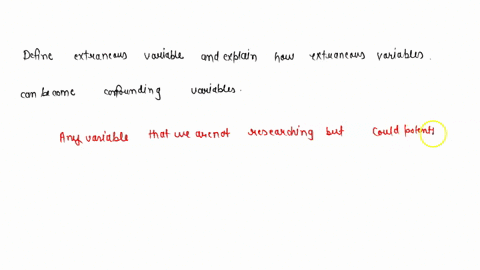 Define extraneous variable and explain how extraneous variables.
can become confounding variables.
Any variable that we are not researching but could potents